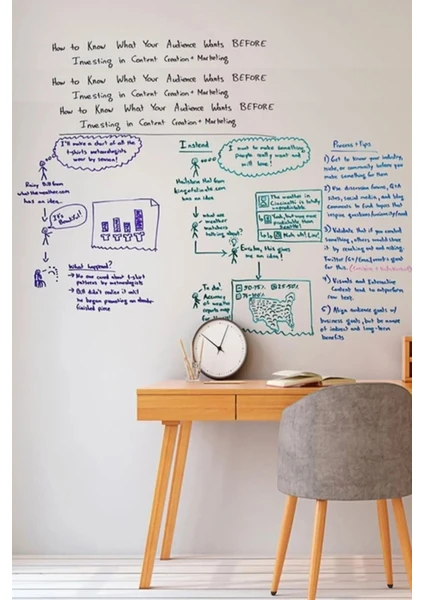 How to Know What Your Audience Wants BEFORE
Investing in Content Creation + Marketing
How to Know What Your Audience Wants BEFORE
Investing in Content Creation + Marketing
How to Know What Your Audience Wants BEFORE
Investing in Content Creation + Marketing
I'll make a chart of all the
t-shirts meteorologists
wear by season!
Rainy Bill from
whattheweather.com
has an idea...
It's
Beautiful!
What happened?
→ No one cared about t-shirt
patterns by meteorologists
→ Bill didn't realize it until
he began promoting an
finished piece
Instead
I want to make something
people really want and
will love!
from
has an idea...
what are
weather
watchers
talking about?
The weather in
Cincinnati is totally
unpredictable
Yeah, but more
predictable than
Seattle!
Nuh uh! Lies!
Eureka, this gives
me an idea!
To do:
Accuracy
of weather
reports map
50-75%
25-50%
76-100%
Process + Tips
1) Get to know your industry,
niche, or community before you
make something for them
2) Use discussion forums, Q+A
sites, social media, and blog
comments to find topics that
inspire questions/curiosity/need
3) Validate that if you created
something, others would share
it by reaching out and asking.
Twitter/G+/Email are great
for this.
4) Visuals and Interactive
Content tend to outperform
raw text.
5) Align audience goals w/
business goals, but be aware
of indirect and long-term
benefits